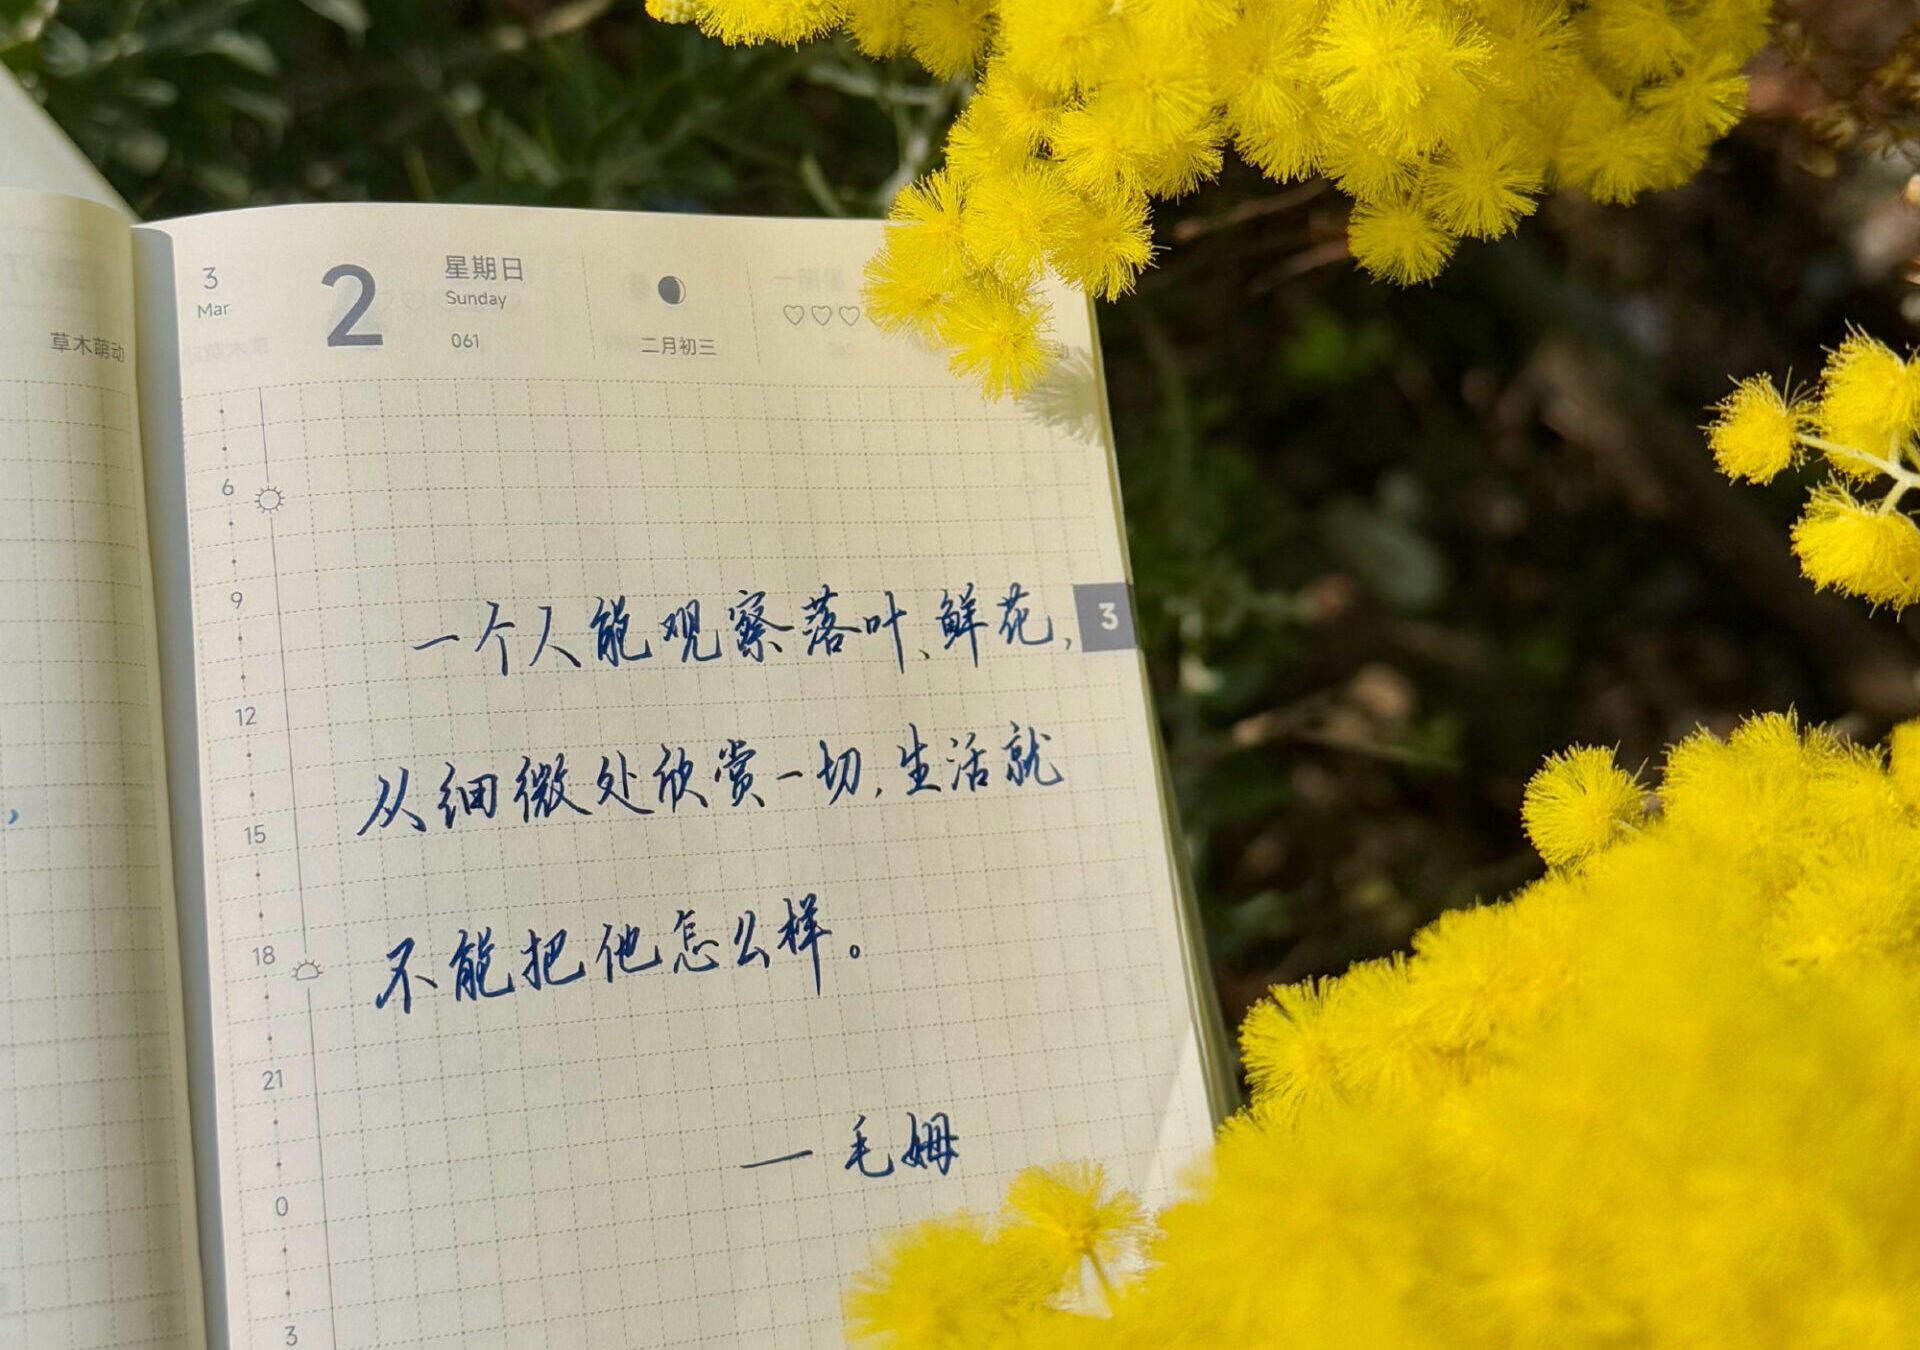 草木萌动
3
Mar
2
星期日
Sunday
061
二月初三
6
9
12
15
18
21
0
3
3
一个人能观察落叶、鲜花，
从细微处欣赏一切，生活就
不能把他怎么样。
— 毛姆
，